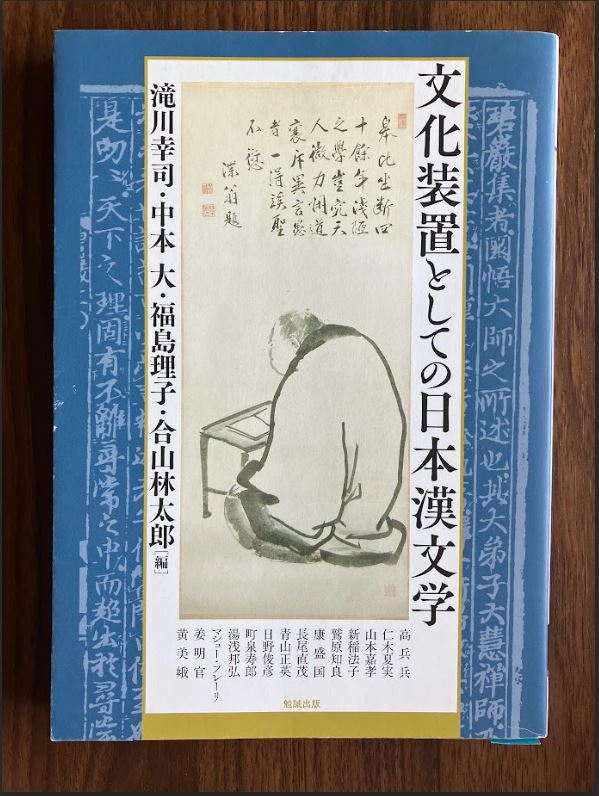 文化装置としての日本漢文学
皐比坐断四
十餘年浅陋
之學豈究天
人微力
道
衰斥異言
者一得誤聖
翁題
滝川幸司・中本 大・福島理子・合山林太郎[編]
高 兵 兵
仁木夏実
山本嘉孝
新稲法子
鷲原知良
康 盛 国
長尾直茂
青山正英
日野俊彦
町泉寿郎
湯浅邦弘
マシュー・フレーリ
姜 明 官
黄 美 娥
勉誠出版
碧巖集者圜悟大師之所述也其大弟子大慧禪師
天下之理固有不離尋常之中而超出於尋